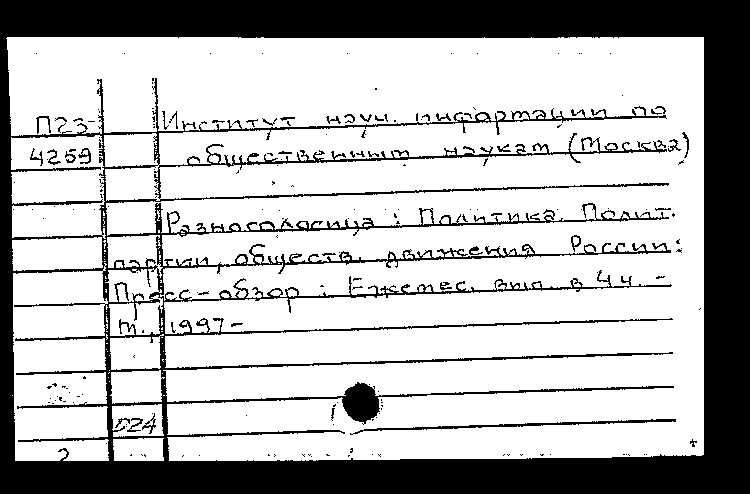 П23- Институт науч. информации по
4259 общественным наукам (Москва)
Разноголосица : Политика. Полит.
партии, обществ. движения России:
Пресс-обзор : Ежемес. вып. в 4 ч. -
М., 1997-
524
2